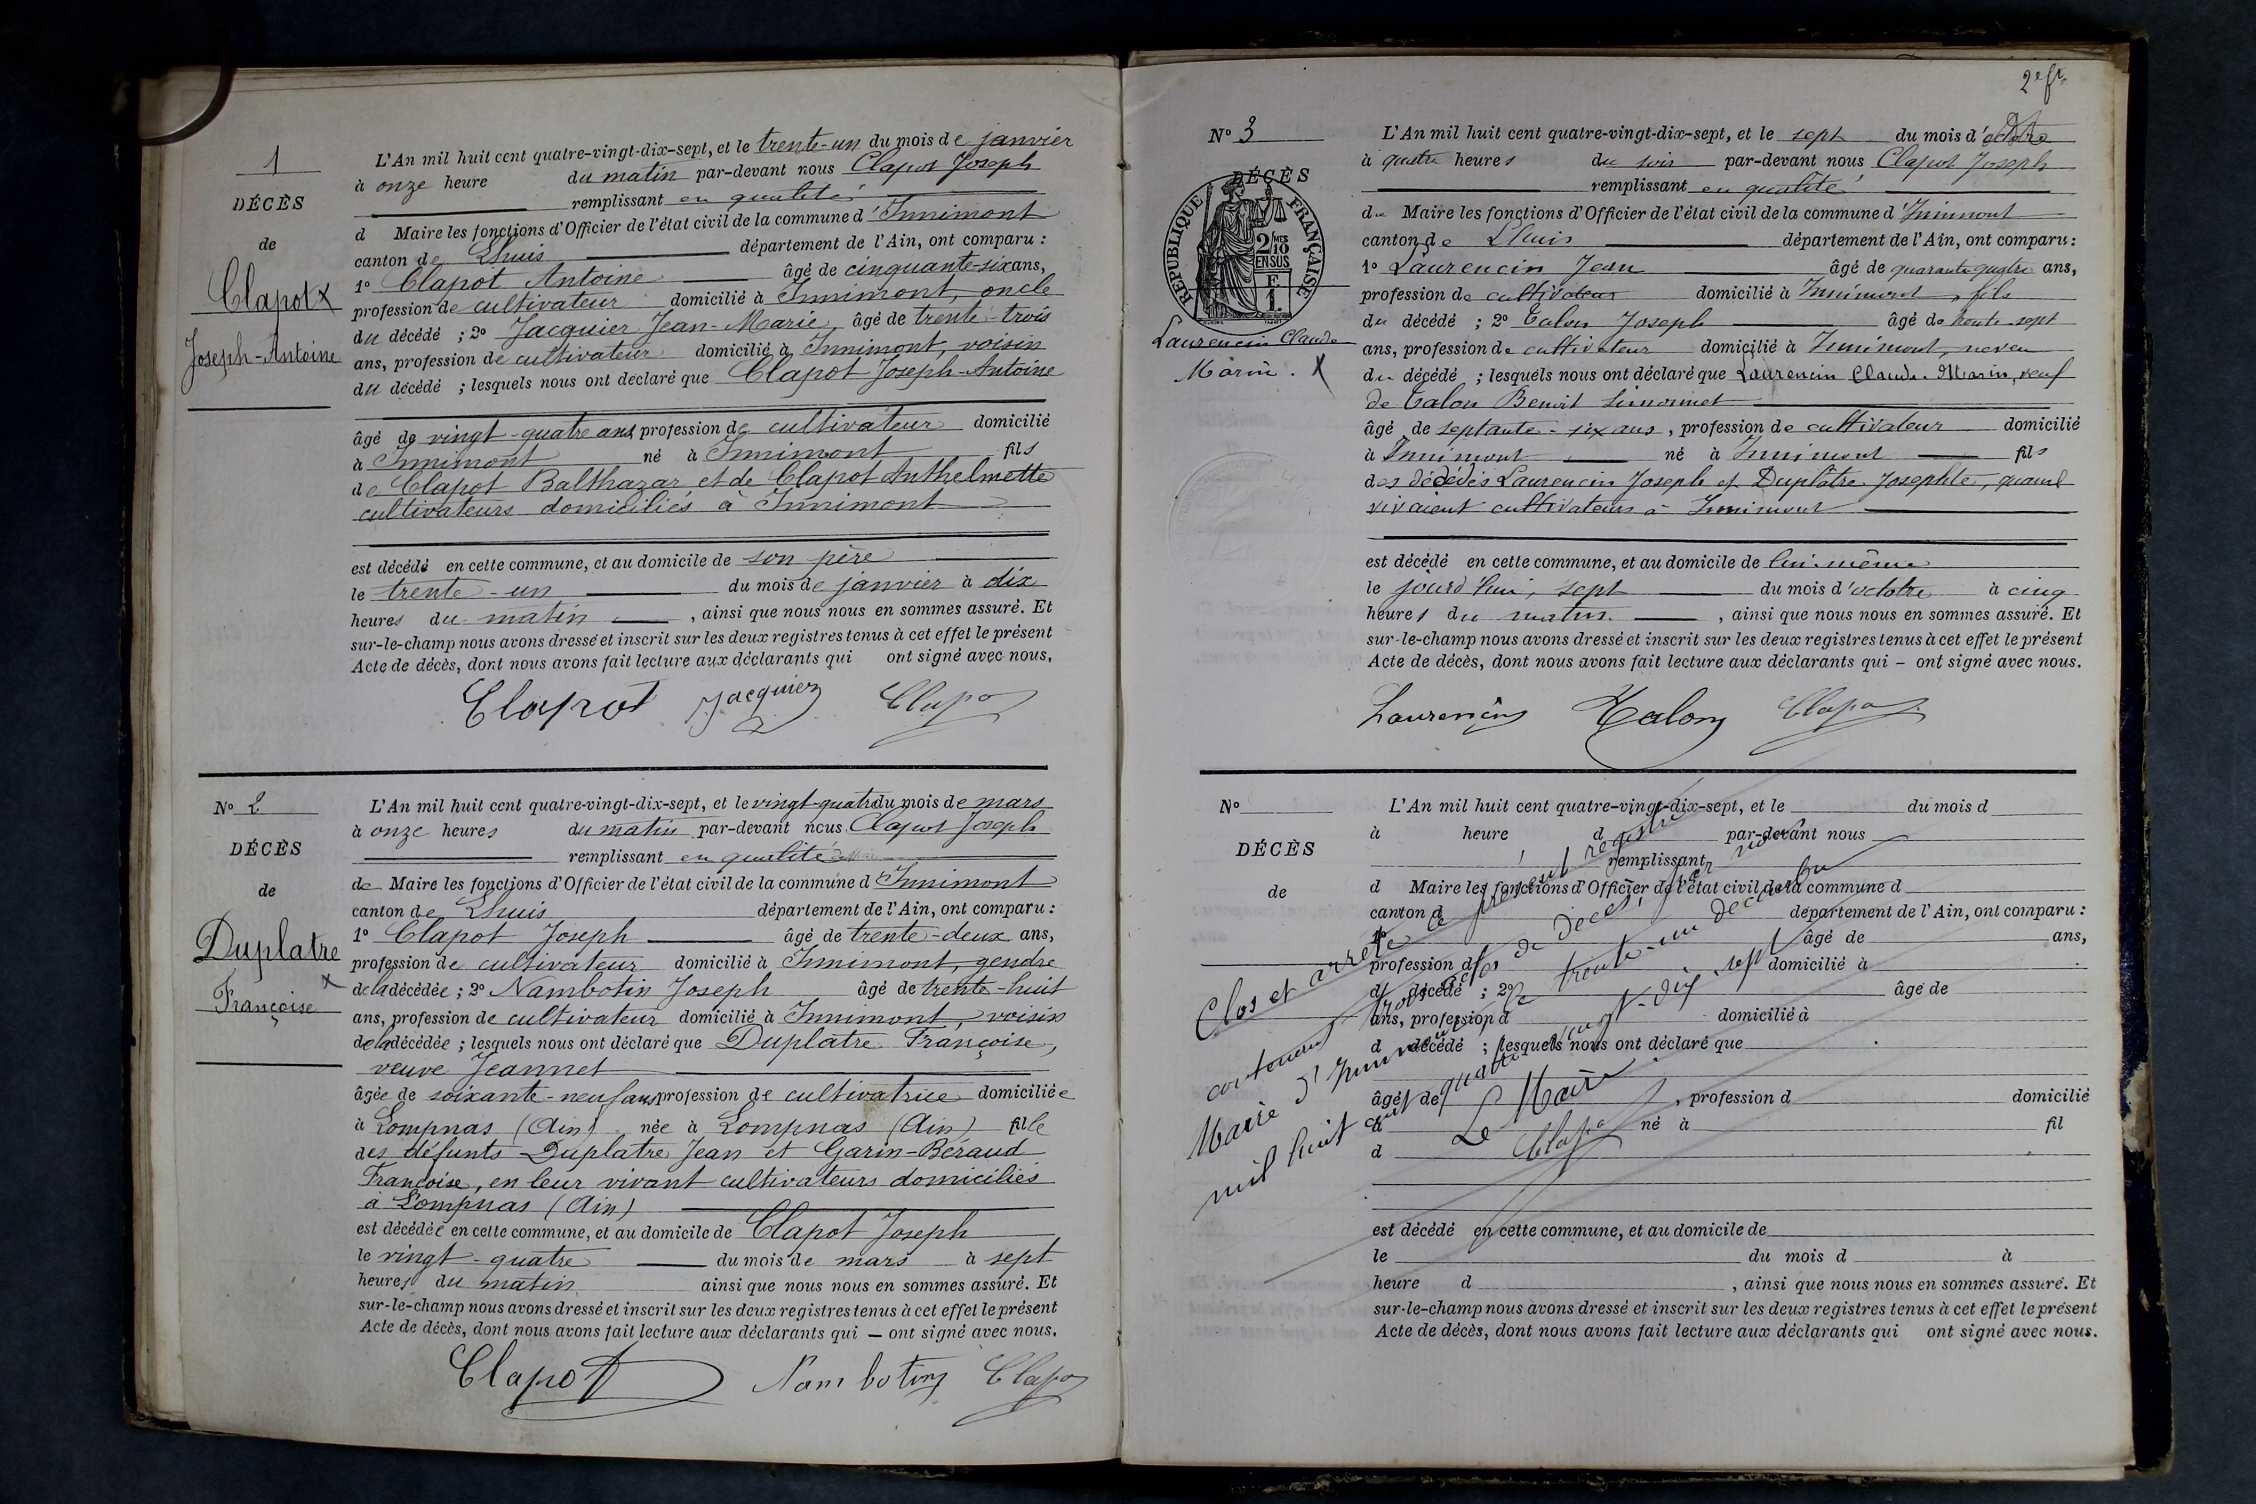 1
DÉCÈS
de
Clapot x
Joseph-Antoine
L'An mil huit cent quatre-vingt-dix-sept, et le trente-un du mois de janvier
à onze heure du matin par-devant nous Clapot Joseph
remplissant en qualité
d Maire les fonctions d'Officier de l'état civil de la commune d'Innimont
canton de Lhuis département de l'Ain, ont comparu :
1° Clapot Antoine âgé de cinquante-six ans,
profession de cultivateur domicilié à Innimont, oncle
du décédé ; 2° Jacquier Jean-Marie, âgé de trente-trois
ans, profession de cultivateur domicilié à Innimont, voisin
du décédé ; lesquels nous ont déclaré que Clapot Joseph-Antoine
âgé de vingt-quatre ans profession de cultivateur domicilié
à Innimont né à Innimont fils
de Clapot Balthazar et de Clapot Anthelmette
cultivateurs domiciliés à Innimont
est décédé en cette commune, et au domicile de son père
le trente-un du mois de janvier à dix
heures du matin, ainsi que nous nous en sommes assuré. Et
sur-le-champ nous avons dressé et inscrit sur les deux registres tenus à cet effet le présent
Acte de décès, dont nous avons fait lecture aux déclarants qui ont signé avec nous.
Clapot Jacquier Clapot
N° 2
DÉCÈS
de
Duplatre
Françoise x
L'An mil huit cent quatre-vingt-dix-sept, et le vingt-quatre du mois de mars
à onze heures du matin par-devant nous Clapot Joseph
remplissant en qualité
de Maire les fonctions d'Officier de l'état civil de la commune d'Innimont
canton de Lhuis département de l'Ain, ont comparu :
1° Clapot Joseph âgé de trente-deux ans,
profession de cultivateur domicilié à Innimont, gendre
de la décédée ; 2° Nambotin Joseph âgé de trente-huit
ans, profession de cultivateur domicilié à Innimont, voisin
de la décédée ; lesquels nous ont déclaré que Duplatre Françoise,
veuve Jeannet
âgée de soixante-neuf ans profession de cultivatrice domiciliée
à Lompnas (Ain) née à Lompnas (Ain) fille
des défunts Duplatre Jean et Garin-Béraud
Françoise, en leur vivant cultivateurs domiciliés
à Lompnas (Ain)
est décédée en cette commune, et au domicile de Clapot Joseph
le vingt-quatre du mois de mars à sept
heures du matin ainsi que nous nous en sommes assuré. Et
sur-le-champ nous avons dressé et inscrit sur les deux registres tenus à cet effet le présent
Acte de décès, dont nous avons fait lecture aux déclarants qui — ont signé avec nous.
Clapot Nambotin Clapot
N° 3
DÉCÈS
RÉPUBLIQUE FRANÇAISE
2/10 MES
EN SUS
F
1.
Laurencin Claude
Marin. X
L'An mil huit cent quatre-vingt-dix-sept, et le sept du mois d'octobre
à quatre heures du soir par-devant nous Clapot Joseph
remplissant en qualité
de Maire les fonctions d'Officier de l'état civil de la commune d'Innimont
canton de Lhuis département de l'Ain, ont comparu :
1° Laurencin Jean âgé de quarante quatre ans,
profession de cultivateur domicilié à Innimont, fils
du décédé ; 2° Talon Joseph âgé de trente-sept
ans, profession de cultivateur domicilié à Innimont, neveu
du décédé ; lesquels nous ont déclaré que Laurencin Claude-Marin, veuf
de Talon Benoit
âgé de septante-six ans, profession de cultivateur domicilié
à Innimont né à Innimont fils
des décédés Laurencin Joseph et Duplâtre Josephte, quand
vivaient cultivateurs à Innimont
est décédé en cette commune, et au domicile de lui-même
le jourd'hui, sept du mois d'octobre à cinq
heures du matin, ainsi que nous nous en sommes assuré. Et
sur-le-champ nous avons dressé et inscrit sur les deux registres tenus à cet effet le présent
Acte de décès, dont nous avons fait lecture aux déclarants qui — ont signé avec nous.
Laurencin Talon Clapot
N°
DÉCÈS
de
L'An mil huit cent quatre-vingt-dix-sept, et le du mois d
à heure d par-devant nous
remplissant
d Maire les fonctions d'Officier de l'état civil de la commune d
canton d département de l'Ain, ont comparu :
1° âgé de ans,
profession d domicilié à
d décédé ; 2° âgé de
ans, profession d domicilié à
d décédé ; lesquels nous ont déclaré que
âgé de , profession d domicilié
à né à fil
d
est décédé en cette commune, et au domicile de
le du mois d à
heure d , ainsi que nous nous en sommes assuré. Et
sur-le-champ nous avons dressé et inscrit sur les deux registres tenus à cet effet le présent
Acte de décès, dont nous avons fait lecture aux déclarants qui ont signé avec nous.
Clos et arrêté le présent registre
contenant trois actes de décès, par nous
Maire d'Innimont le trente-un décembre
mil huit cent quatre-vingt-dix-sept
Le Maire
Clapot